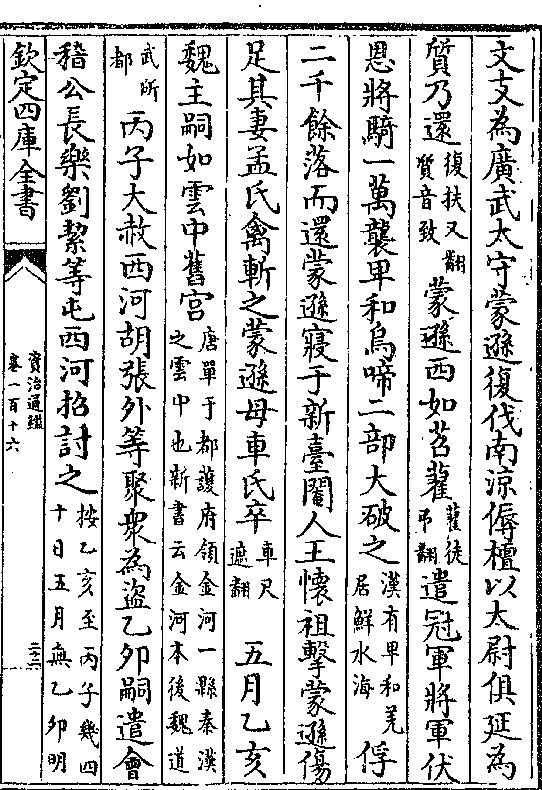 文支為廣武太守蒙遜復伐南涼傉檀以太尉俱延為
質乃還復扶又翻質音致蒙遜西如苕藋藋徒弔翻遣冠軍將軍伏
恩將騎一萬襲卑和烏啼二部大破之漢有卑和羌居鮮水海俘
二千餘落而還蒙遜寢于新臺閹人王懷祖擊蒙遜傷
足其妻孟氏禽斬之蒙遜母車氏卒車尺遮翻五月乙亥
魏主嗣如雲中舊宮唐單于都護府領金河一縣秦漢之雲中也新書云金河本後魏道
武所都丙子大赦西河胡張外等聚衆為盜乙卯嗣遣會
稽公長樂劉絜等屯西河招討之按乙亥至丙子幾四十日五月無乙卯明
欽定四庫全書
資治通鑑
卷一百十六
二十二